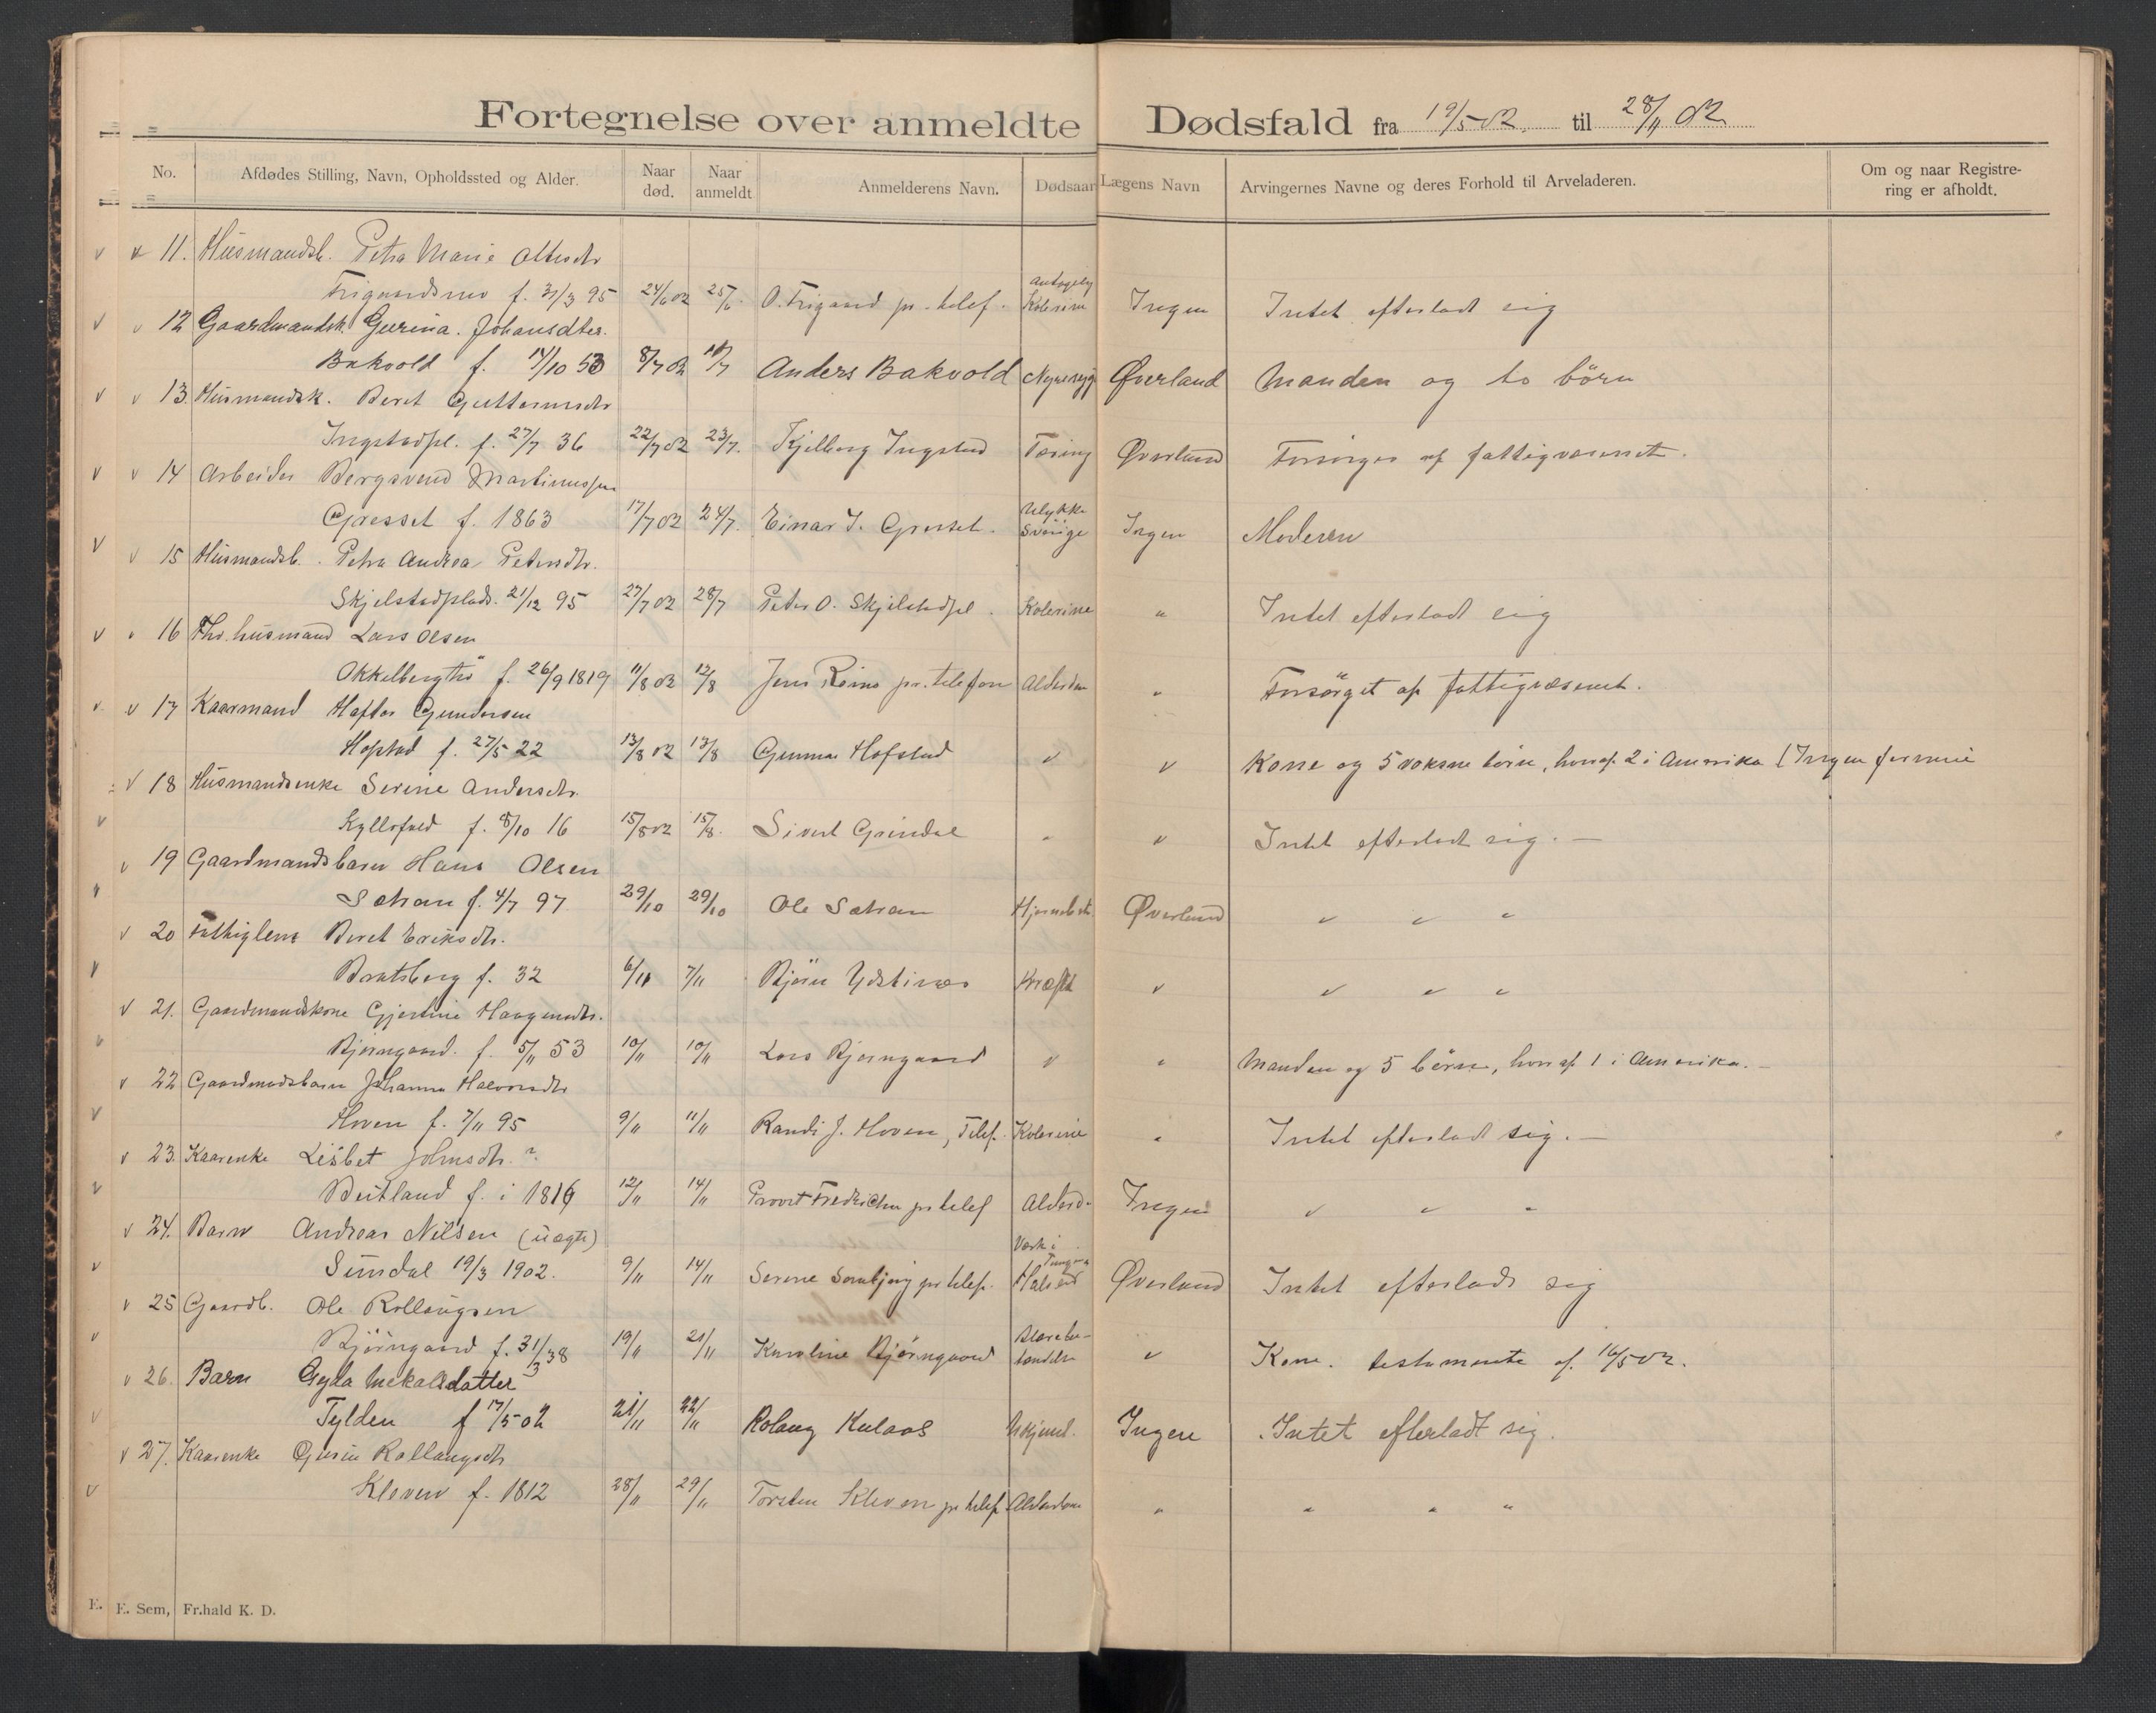 Fortegnelse over anmeldte Dødsfald fra 19/5 02. til 28/11 02
No. Afdødes Stilling, Navn, Opholdssted og Alder. Naar død. Naar anmeldt. Anmelderens Navn. Dødsaar Lægens Navn Arvingernes Navne og deres Forhold til Arveladeren. Om og naar Registrering er afholdt.
11. Husmandsb. Petra Marie
f. 31/3 95 24/6 02 25/6 O. Trigaard pr. telef. Kolerine Ingen Intet efterladt sig
12 Gaardmandsk. Gurina. Johansdter.
Bakvold f. 14/10 53 8/7 02 10/7 Anders Bakvold Øverland Manden og to børn
13. Husmandsk. Beret Guttormsdtr
Ingstadpl. f. 27/7 36 22/7 02 23/7. Kjelborg Ingstad Tæring Øverland Forsørges af fattigvæsenet.
14 Arbeider Bergsvend Martinussen
Græsset f. 1863 17/7 02 24/7. Einar J. Græsset. Ulykke Sverige Ingen Moderen
15 Husmandsb. Petra Andrea Petersdtr.
Skjelstadplads. 21/12 95 27/7 02 28/7 Peter O. Skjelstadpl. Kolerine " Intet efterladt sig
16 Fhv. husmand Lars Olsen
f. 26/9 1819 11/8 02 12/8 Jens pr. telefon Alderdom " Forsørget af fattigvæsenet.
17 Kaarmand Haftor Gundersen
Hofstad f. 27/5 22 13/8 02 13/8 Gunnar Hofstad " " Kone og 5 voksne børn, hvoraf 2 i Amerika (Ingen formue
18 Husmandsenke Serine Andersdtr.
f. 8/10 16 15/8 02 15/8. Sivert Grindal " " Intet efterladt sig. —
19 Gaardmandsbarn Hans Olsen
Sætran f. 4/7 97 29/10 29/10 Ole Sætran Øverland " " "
20 Fattiglem Beret Eriksdtr.
Bratsberg f. 32 6/11 7/11 Bjørn Ydstines Kræft " " " "
21. Gaardmandskone Gjertine Haagensdtr.
Bjørngaard. f. 5/11 53 10/11 10/11 Lars Bjørngaard " " Manden og 5 børn, hvoraf 1 i Amerika. —
22 Gaardmandsbarn Johanna Halvorsdtr
Hoven f. 7/11 95 9/11 11/11 Randi J. Hoven, Telef. Kolerine " Intet efterladt sig. —
23. Kaarenke Lisbet Johnsdtr. ?
Beitland f. i 1816 12/11 14/11 Provst Fredrichsen pr telef Alderd. Ingen " " "
24. Barn Andreas Nilsen (uægte)
Sundal 19/3 1902. 9/11 14/11 Serine pr telef. Værk i Øverland Intet efterladt sig
25 Gaardb. Ole Rollaugsen
Bjørngaard f. 31/3 38 19/11 21/11 Karoline Bjørngaard " Kone. testamente af 16/5 02.
26. Barn Gyda Mekalsdatter
Tylden f 17/5 02 21/11 22/11 Rolaug Kulaas Ukjend. Ingen Intet efterladt sig.
27. Kaarenke Guru Rollaugsdtr
Kleven f. 1812 28/11 29/11 Torsten Kleven pr telef Alderdom " " " "
E. E. Sem, Fr.hald K. D.